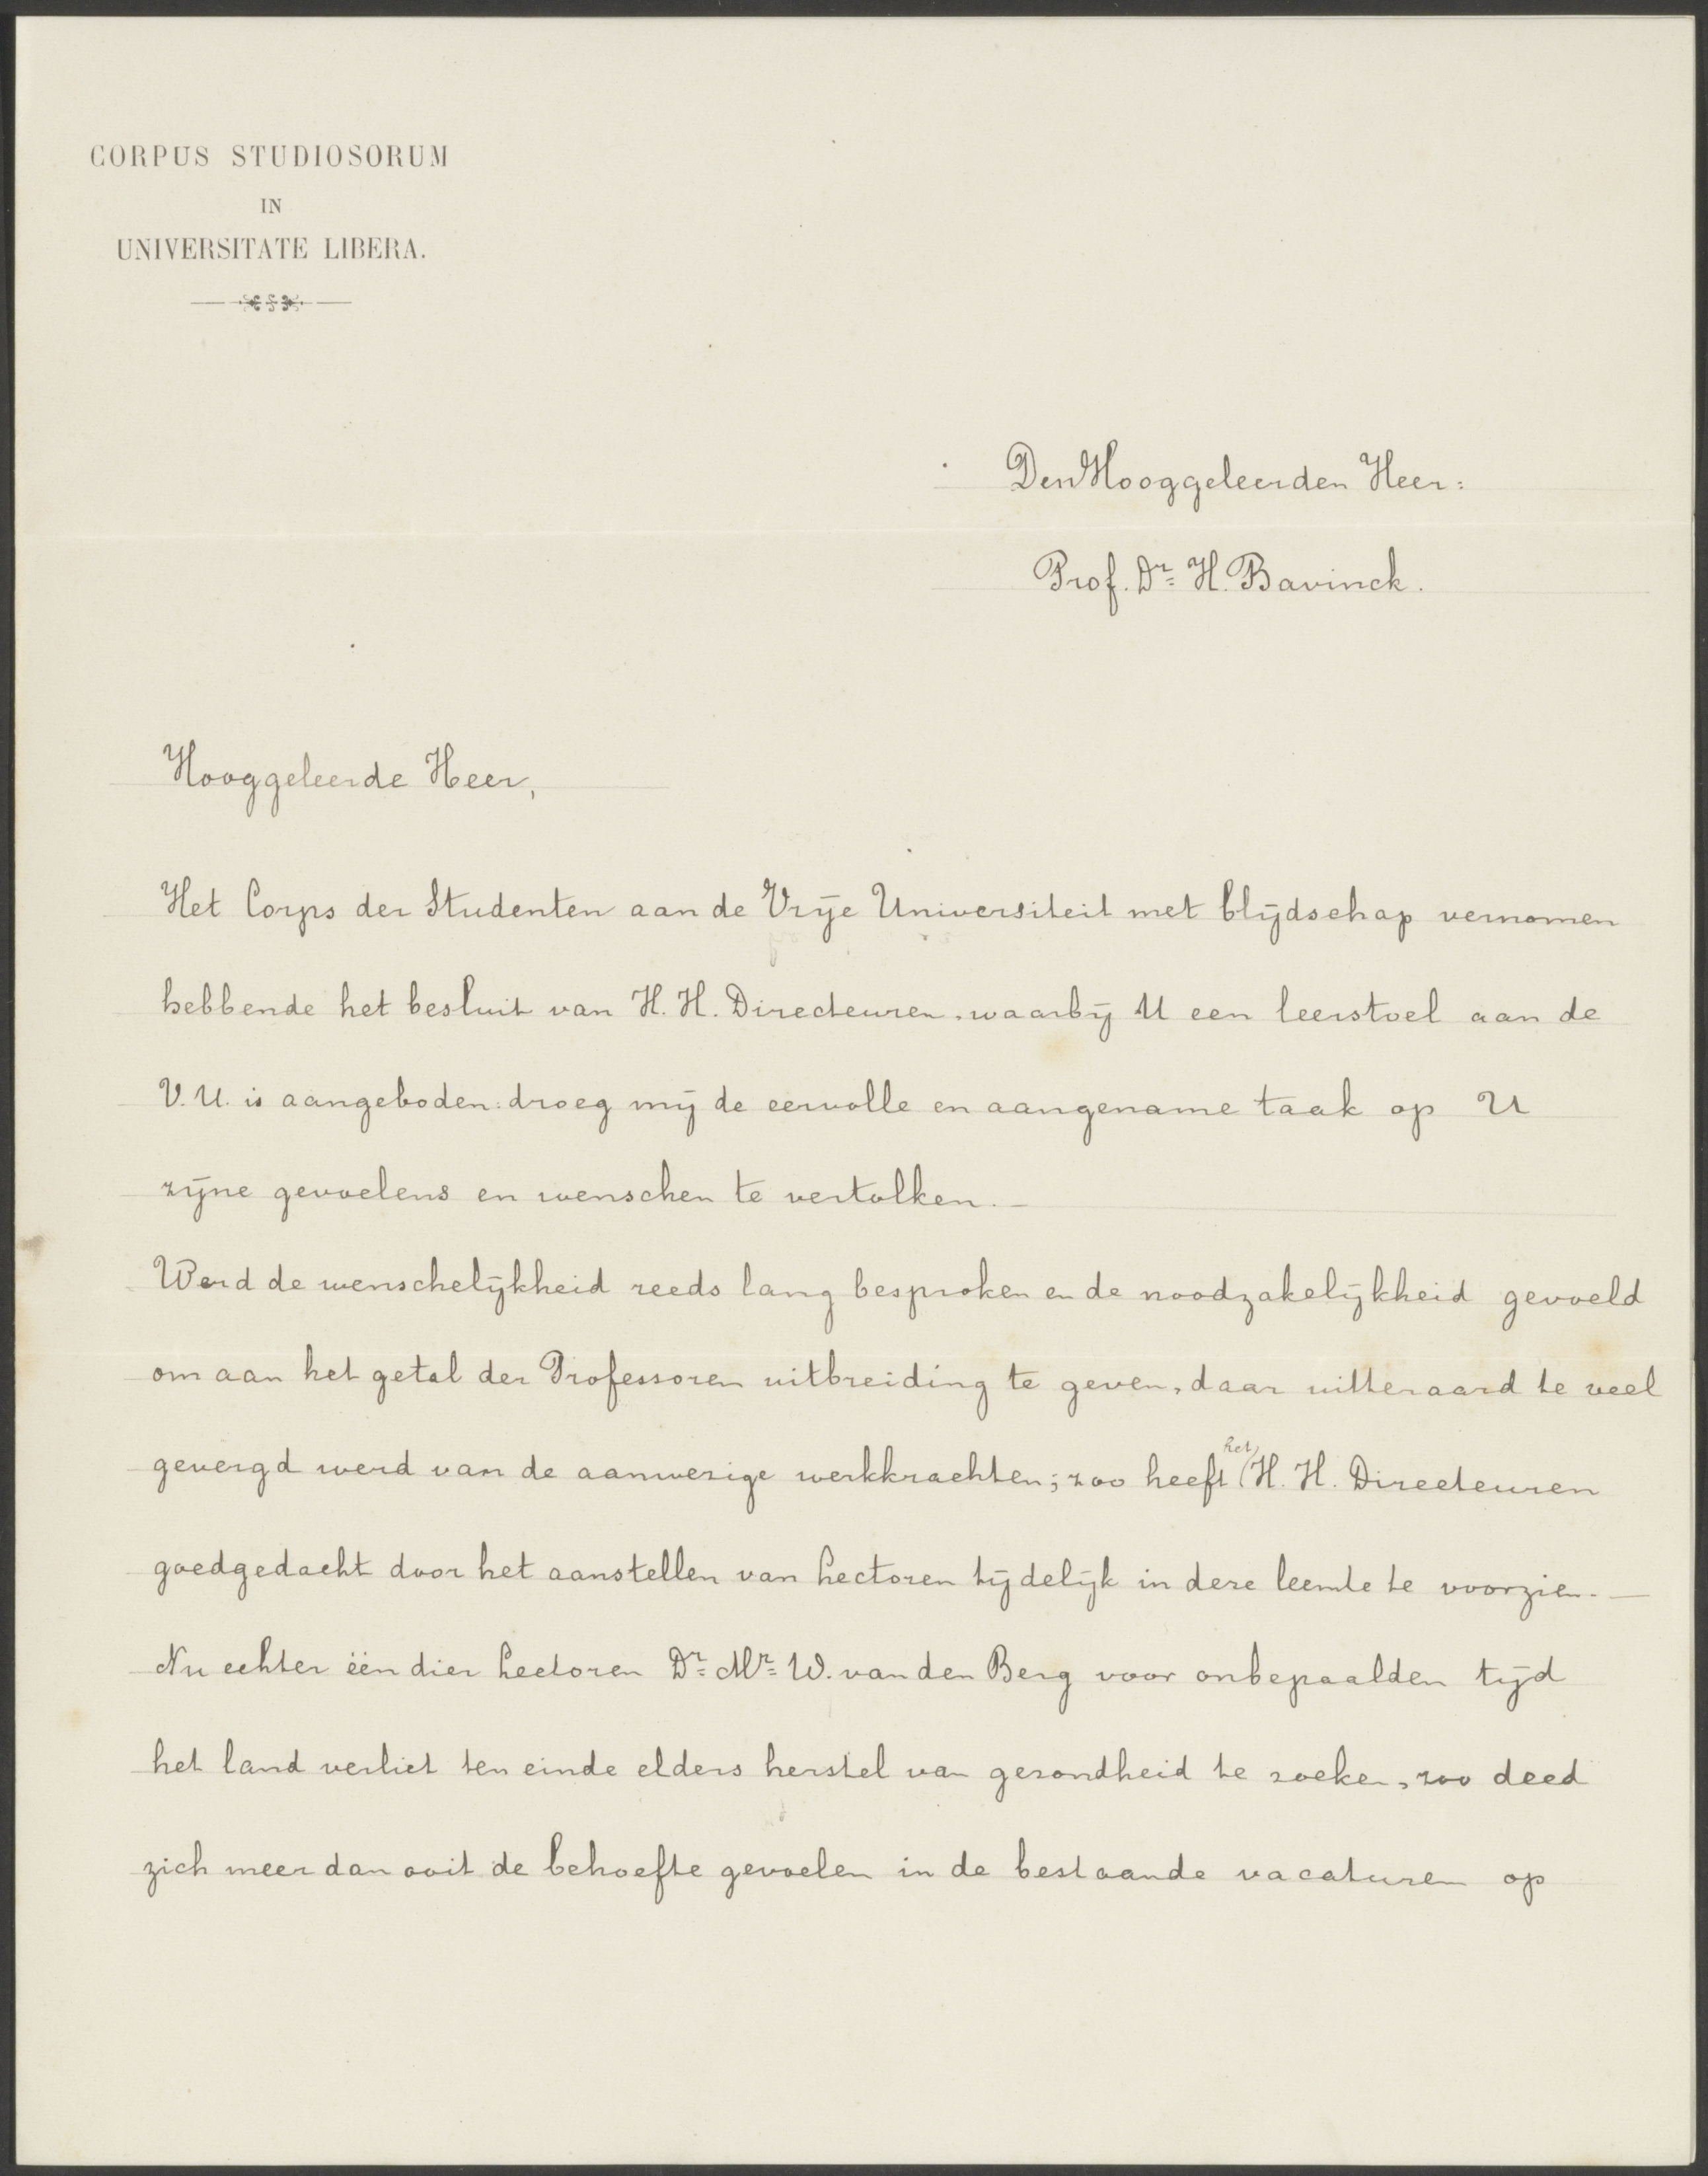 CORPUS STUDIOSORUM
IN
UNIVERSITATE LIBERA.
Den Hooggeleerden Heer:
Prof. Dr. H. Bavinck.
Hooggeleerde Heer,
Het Corps der Studenten aan de Vrije Universiteit met blijdschap vernomen
hebbende het besluit van H. H. Directeuren, waarbij U een leerstoel aan de
V. U. is aangeboden: droeg mij de eervolle en aangename taak op U
zijne gevoelens en wenschen te vertolken. —
Werd de wenschelijkheid reeds lang besproken en de noodzakelijkheid gevoeld
om aan het getal der Professoren uitbreiding te geven, daar uitteraard te veel
gevergd werd van de aanwezige werkkrachten; zoo heeft het H. H. Directeuren
goedgedacht door het aanstellen van Lectoren tijdelijk in deze leemte te voorzien. —
Nu echter één dier Lectoren Dr. Mr. W. van den Berg voor onbepaalden tijd
het land verliet ten einde elders herstel van gezondheid te zoeken, zoo deed
zich meer dan ooit de behoefte gevoelen in de bestaande vacaturen op